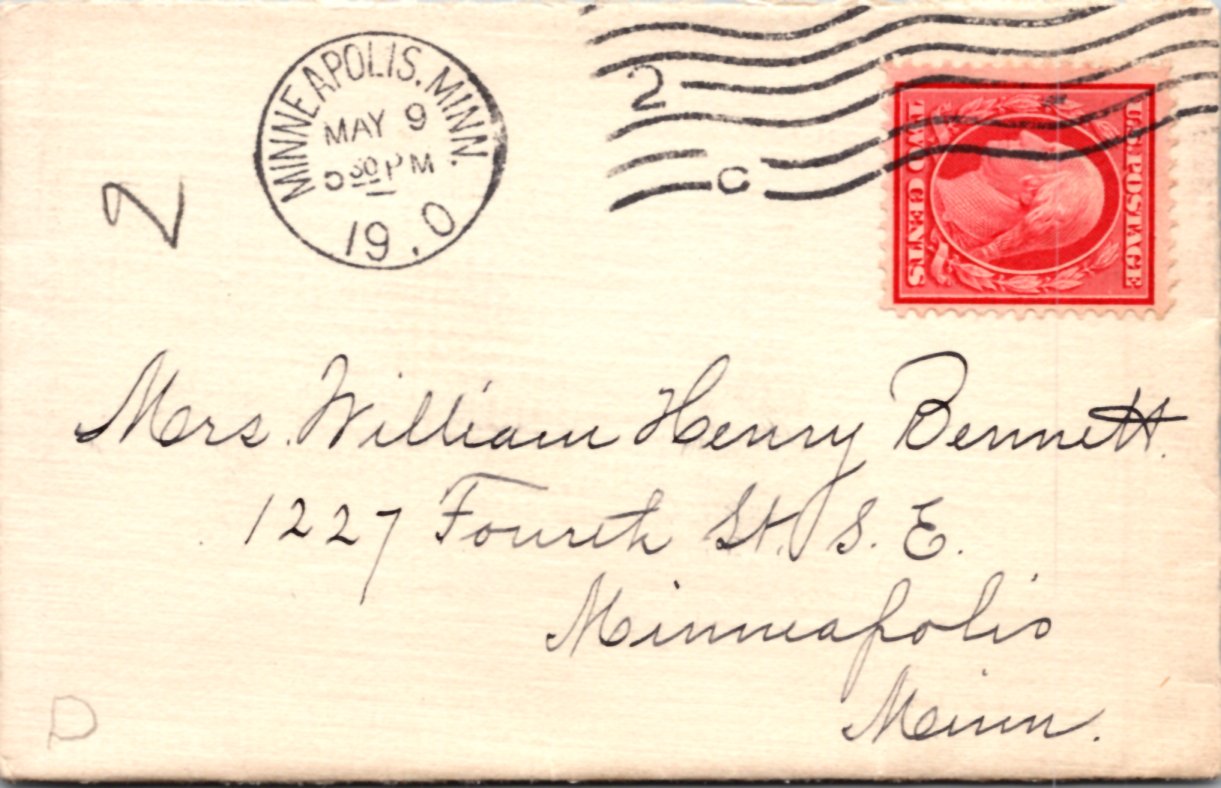 MINNEAPOLIS. MINN.
MAY 9
5 30 PM
19.0
2
C
2
TWO CENTS
U.S. POSTAGE
Mrs. William Henry Bennett.
1227 Fourth St. S. E.
Minneapolis
Minn.
D